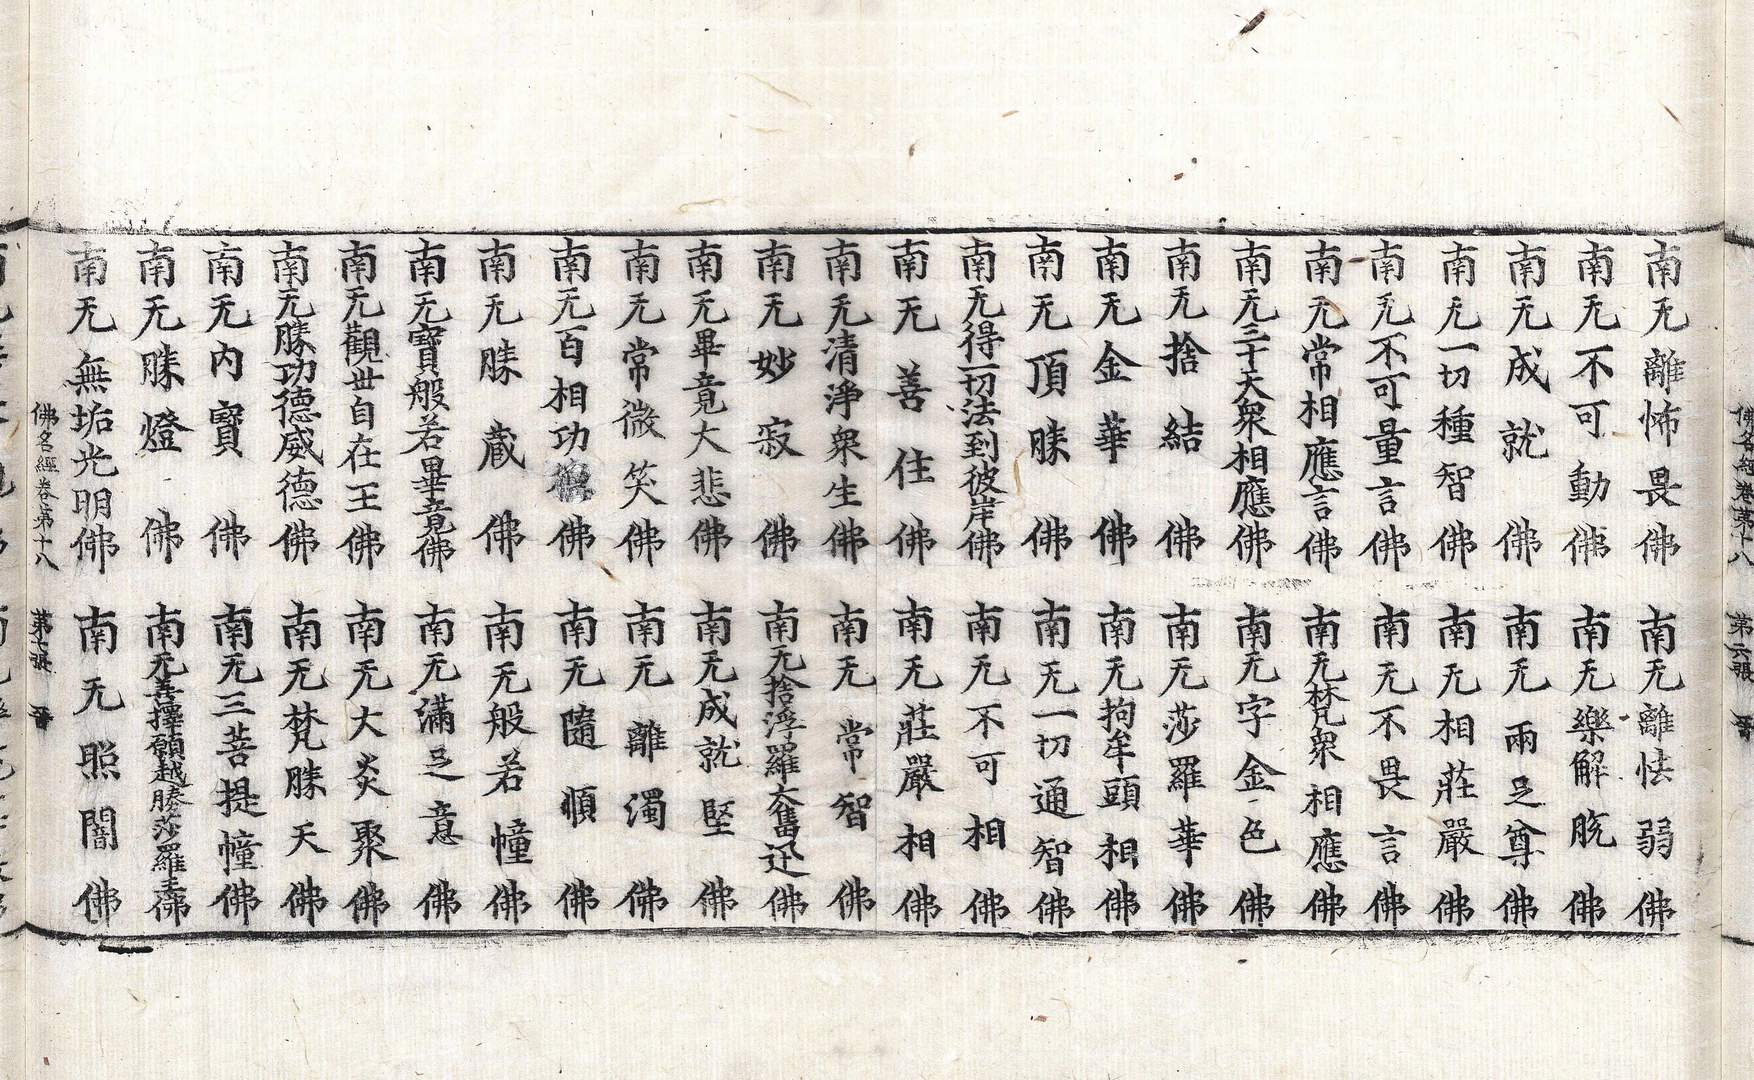 佛名經卷第十八 第六張 晉
南无離怖畏佛 南无離怯弱佛
南无不可動佛 南无樂解脫佛
南无成就佛 南无兩足尊佛
南无一切種智佛 南无相莊嚴佛
南无不可量言佛 南无不畏言佛
南无常相應言佛 南无梵衆相應佛
南无三十大衆相應佛 南无字金色佛
南无捨結佛 南无莎羅華佛
南无金華佛 南无拘牟頭相佛
南无頂勝佛 南无一切通智佛
南无得一切法到彼岸佛 南无不可相佛
南无善住佛 南无莊嚴相佛
南无清淨衆生佛 南无常智佛
南无妙寂佛 南无捨浮羅大奮迅佛
南无畢竟大悲佛 南无成就堅佛
南无常微笑佛 南无離濁佛
南无百相功德佛 南无隨順佛
南无勝蔵佛 南无般若幢佛
南无寶般若畢竟佛 南无滿足意佛
南无觀世自在王佛 南无大炎聚佛
南无勝功德威德佛 南无梵勝天佛
南无内寶佛 南无三菩提幢佛
南无勝燈佛 南无善擇願越勝莎羅王佛
南无無垢光明佛 南无照闇佛
佛名經卷第十八 第七張 晉